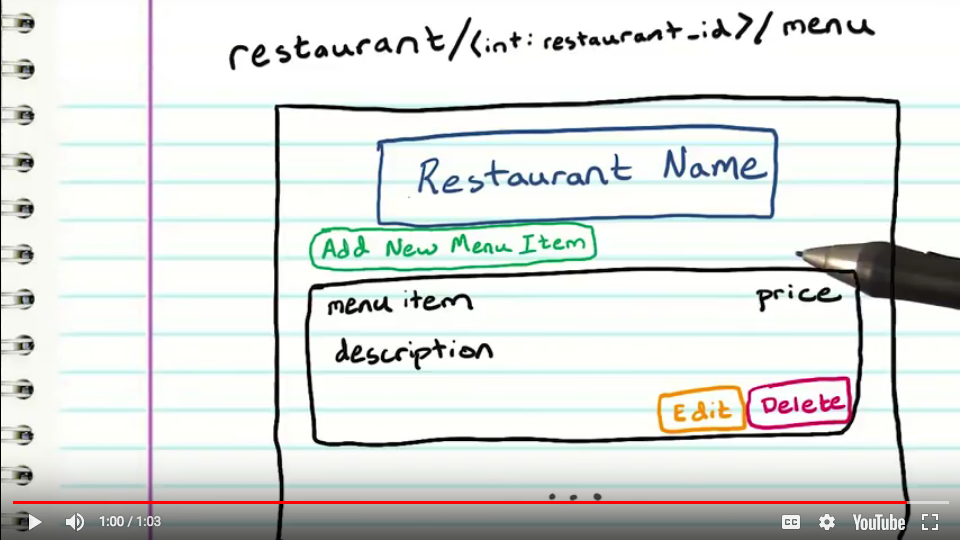 restaurant/<int: restaurant_id>/menu
Restaurant Name
Add New Menu Item
menu item price
description
Edit Delete
...
1:00 / 1:03 CC YouTube